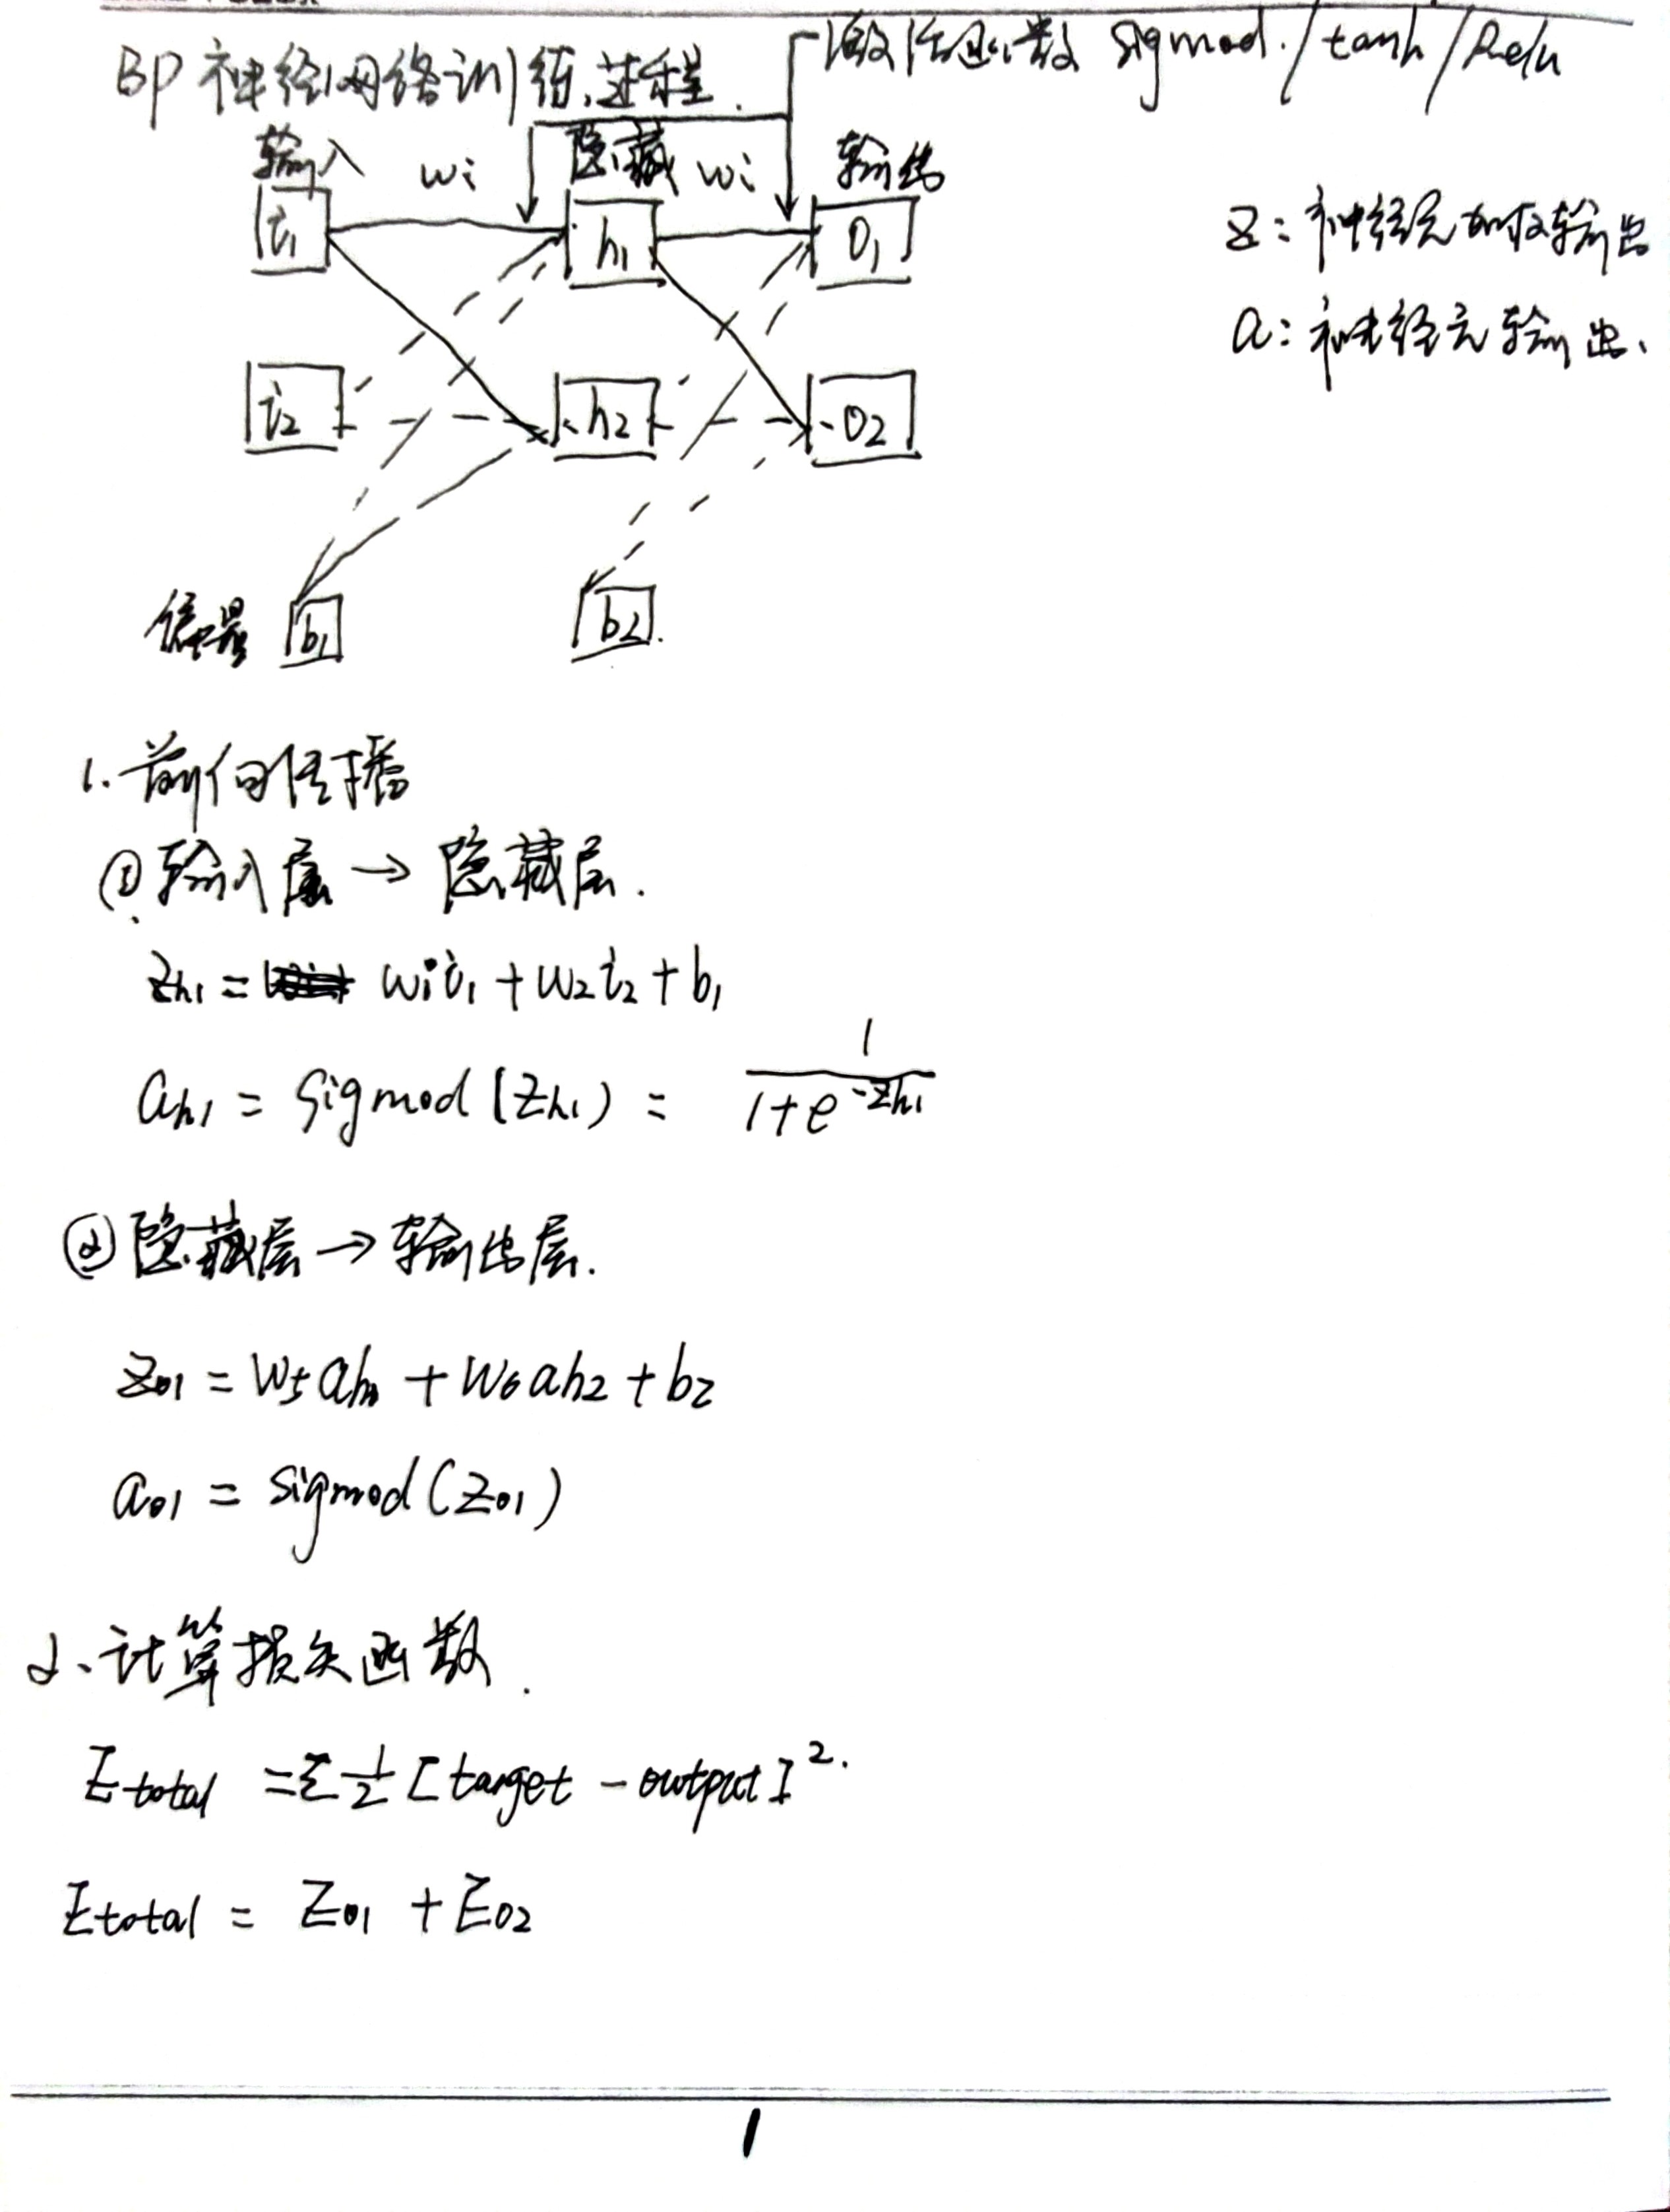 BP神经网络训练过程.
激活函数 sigmod./tanh/Relu
输入 wi 隐藏 wi 输出
i1 h1 O1
z: 神经元加权输出
a: 神经元输出.
i2 h2 O2
偏置 b1 b2.
1. 前向传播
① 输入层 → 隐藏层.
Zh1 = w1i1 + w2i2 + b1
ah1 = Sigmod(Zh1) = 1/(1+e^-Zh1)
② 隐藏层 → 输出层.
Zo1 = W5ah1 + W6ah2 + b2
ao1 = Sigmod(Zo1)
2、计算损失函数.
Etotal = Σ 1/2 [target - output]².
Etotal = Eo1 + Eo2
1